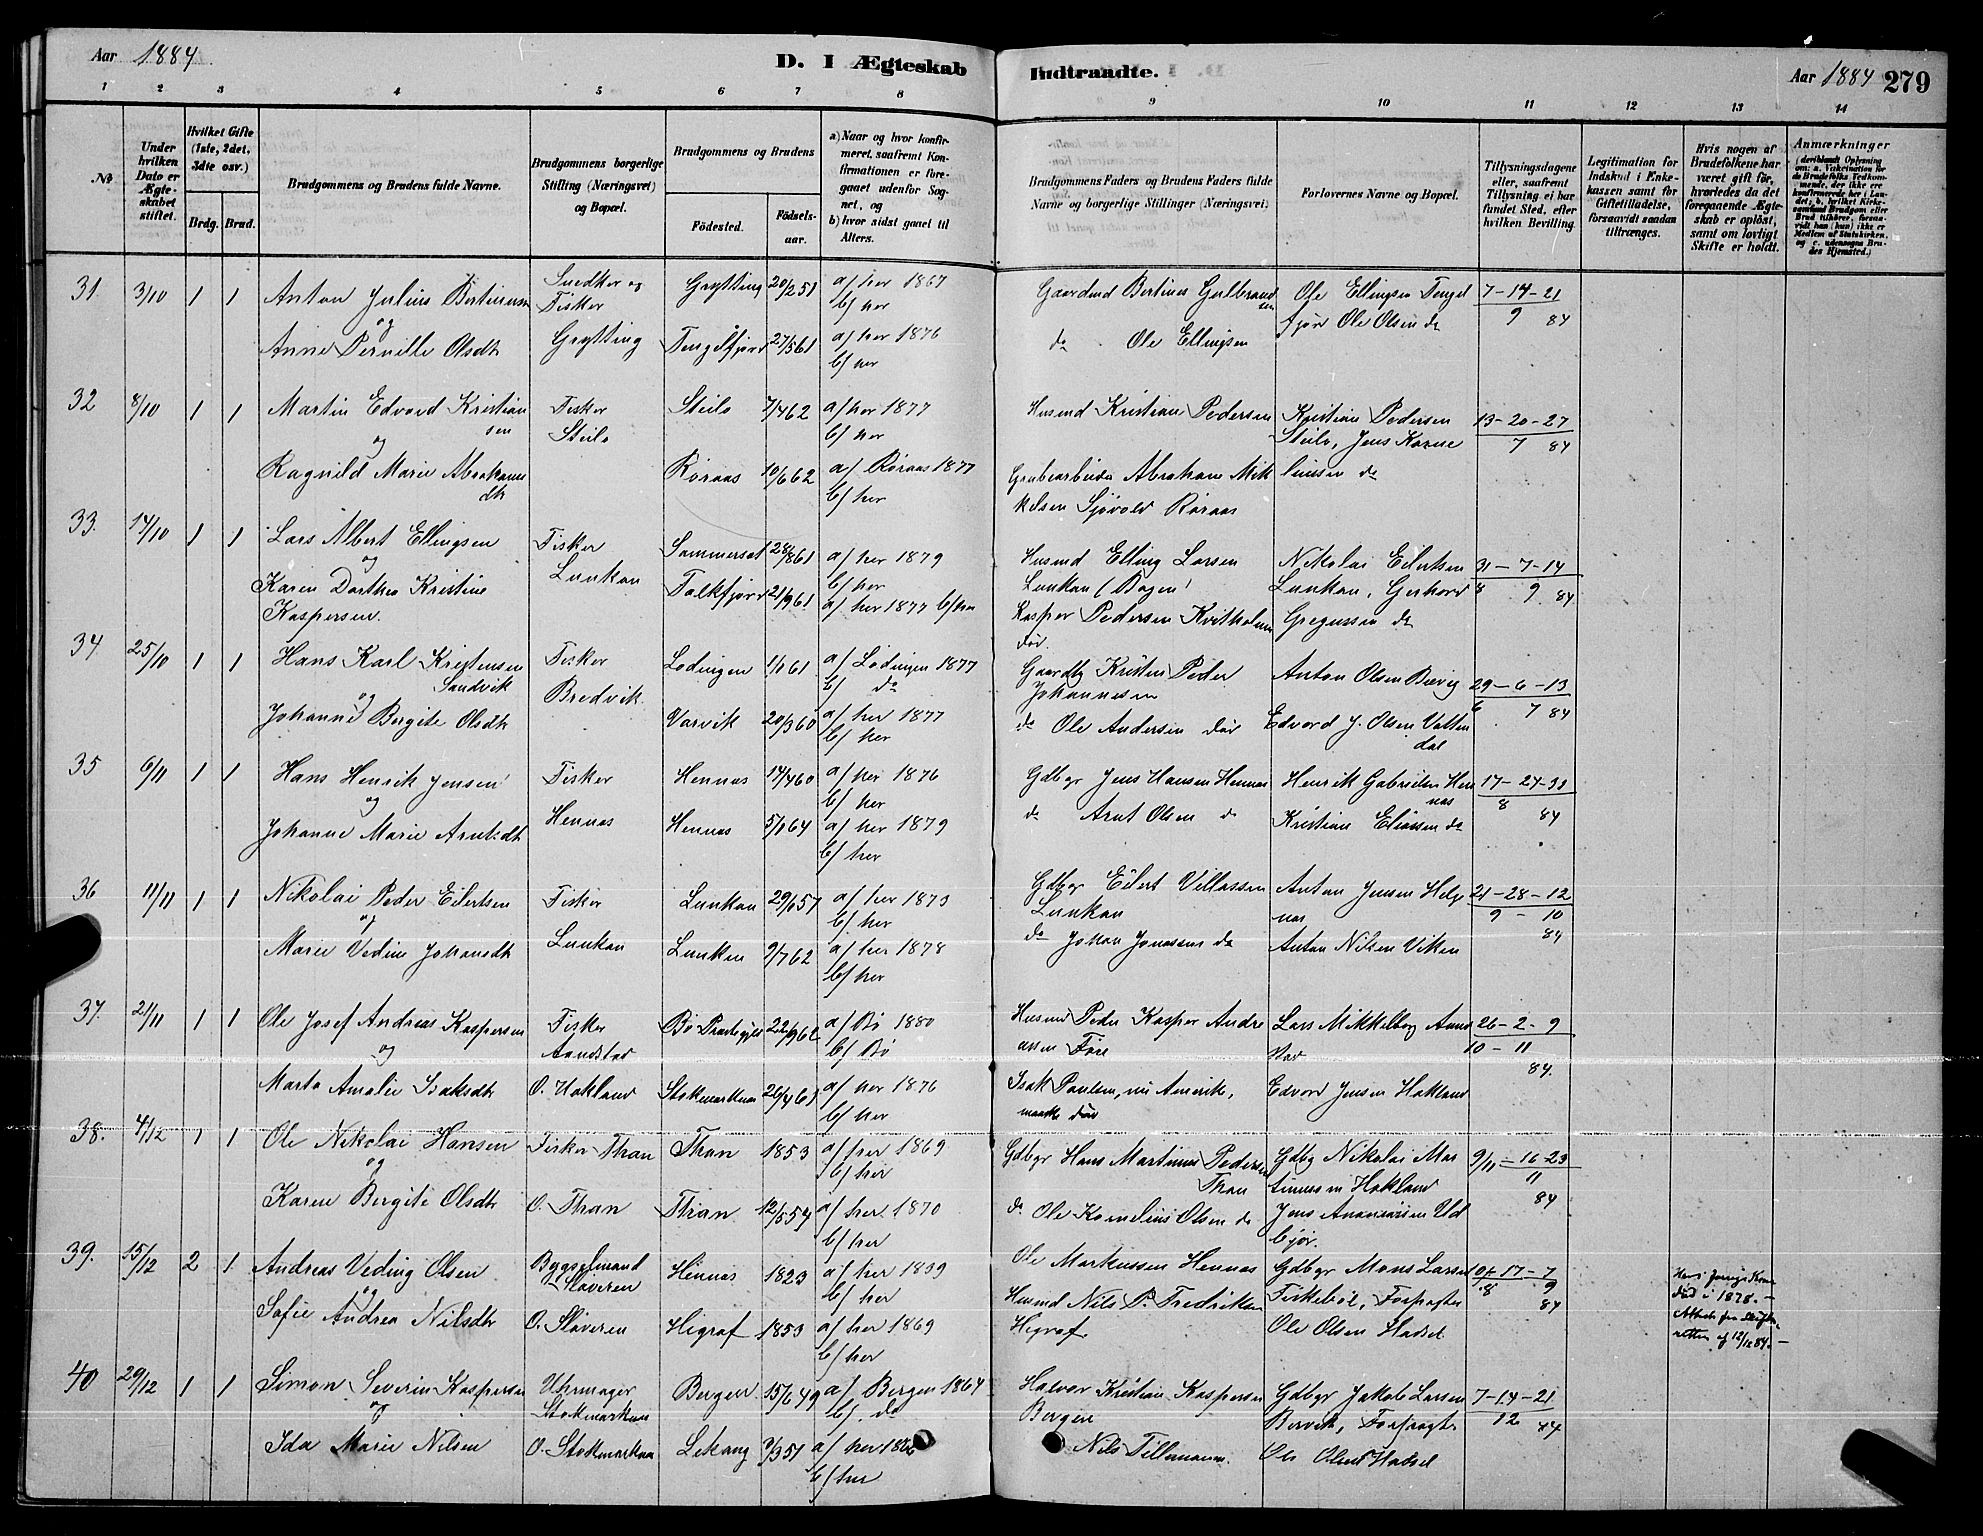 Aar 1884.
D. I Ægteskab Indtraadte.
Aar 1884 279
1 2 3 4 5 6 7 8 9 10 11 12 13 14
№
Under hvilken Dato er Ægteskabet stiftet.
Hvilket Gifte (1ste, 2det, 3die osv.)
Brdg. Brud.
Brudgommens og Brudens fulde Navne.
Brudgommens borgerlige Stifting (Næringsvei) og Bopæl.
Brudgommens og Brudens
Fødested.
Fødselsaar.
a) Naar og hvor konfirmeret, saafremt Konfirmationen er foregaaet udenfor Sognet, og
b) hvor sidst gaaet til Alters.
Brudgommens Faders og Brudens Faders fulde Navne og borgerlige Stillinger (Næringsvei)
Forlovernes Navne og Bopæl.
Tillysningsdagene eller, saafremt Tillysning ei har fundet Sted, efter hvilken Bevilling.
Legitimation for Indskud i Enkekassen samt for Giftetilladelse, forsaavidt saadan tiltrænges.
Hvis nogen af Brudefolkene har været gift før, hvorledes da det foregaaende Ægteskab er opløst, samt om lovligt Skifte er holdt.
Anmærkninger
31 3/10 1 1 Anton Julius Bertinussen Snedker og Fisker Grytting 20/2 51 a/ her 1867 Gaardmd Bertinus Gulbrandsen Ole Ellingsen Tengel 7-14-21
og Grytting b/ her fjor Ole Olsen do 9 84
Anne Pernille Olsdtr Tengelfjord 27/5 61 a/ her 1876 do Ole Ellingsen
b/ her
32 8/10 1 1 Martin Edvard Kristiansen Fisker Steilo 7/4 62 a/ her 1877 Husmd Kristian Pedersen Kristian Pedersen 13-20-27
og Steilo b/ her Steilo, Jens Karne 7 84
Ragnild Marie Abrahamsdtr Røraas 10/6 62 a/ Røraas 1877 Grubearbeider Abraham Mik liussen do
b/ her kelsen Sjøvold Røraas
33. 14/10 1 1 Lars Albert Ellingsen Fisker Sommersæt 28/8 61 a/ her 1879 Husmd Elling Larsen Nikolai Eilertsen 31-7-14
og Lunkan b/ her Lunkan (Bogen) Lunkan, Gerhard 8 9 84
Karen Dorthea Kristine Falkfjord 21/9 61 a/ her 1877 b/ her Kasper Pedersen Kvitholmen Gregussen do
Kaspersen. død.
34. 25/10 1 1 Hans Karl Kristensen Fisker Lødingen 1/1 61 a/ Lødingen 1877 Gaardbr Kristen Peder Anton Olsen Bervig 29-6-13
Sandvik Bredvik b/ do Johannesen 6 7 84
og
Johanne Bergite Olsdtr Varvik 20/3 60 a/ her 1877 do Ole Andersen død Edvard J. Olsen Vottendal
b/ her
35 6/11 1 1 Hans Henrik Jensen Fisker Hennas 14/4 60 a/ her 1876 Gdbgr Jens Hansen Hennas Henrik Gabrielsen Hennas 17-24-31
og Hennas b/ her 8 84
Johanne Marie Arntsdtr Hennas 5/1 64 a/ her 1879 do Arnt Olsen do Kristian Eliassen do
b/ her
36 11/11 1 1 Nikolai Peder Eilertsen Fisker Lunkan 29/1 57 a/ her 1873 Gdbgr Eilert Villassen Anton Jensen Helge 21-28-12
og Lunkan b/ her Lunkan nas 9 - 10
Marie Vedine Johansdtr Lunkan 9/7 62 a/ her 1878 do Johan Jonassen do Anton Nilsen Viken 84
b/ her
37. 21/11 1 1 Ole Josef Andreas Kaspersen Fisker Bø Præstegjeld 22/9 62 a/ Bø 1880 Husmd Peder Kasper Andre Lars Mikkelborg Aand 26-2-9
og Aandstad b/ Bø assen Føre stad 10-11
Marta Amalie Isaksdtr O. Hokland Stokmarknes 26/4 61 a/ her 1876 Isak Paulsen, nu Amerika, Edvard Jensen Hokland 84.
b/ her maaske død
38. 4/12 1 1 Ole Nikolai Hansen Fisker Thran Thran 1853 a/ her 1869 Gdbgr Hans Martinus Pedersen Gdbg Nikolai Mar 9/11-16-23
og b/ her Thran tinussen Hokland 11
Karen Bergite Olsdtr O. Thran Thran 12/5 54 a/ her 1870 do Ole Kornelius Olsen do Jens Ananiassen Ud 84
b/ her bjør.
39. 15/12 2 1 Andreas Veding Olsen Bygselmand Hennas 1823 a/ her 1839 Ole Markussen Hennas Gdbgr Mons Larsen 17-7
og Sløveren b/ her Fiskebøl, Forpagter 8 9
Sofie Andrea Nilsdtr O. Sløveren Higraf 1853 a/ her 1869 Husmd Nils P. Fredriksen Ole Olsen Hadsel 84
b/ her Higraf
Hans forrige Kone død i 1878. - Attest fra Skifteretten af 12/12 84. -
40 29/12 1 1 Simon Severin Kaspersen Uhrmager Bergen 15/6 49 a/ Bergen 1864 Halvor Kristian Kaspersen Gdbgr Jakob Larsen 7-14-21
og Stokmarknes b/ do Bergen Bervik, Forpagter 12 84
Ida Marie Nilsen O. Stokmarknes Lekang 7/3 51 a/ her 1866 Nils Tillemann. Ole Olsen Hadsel
b/ her